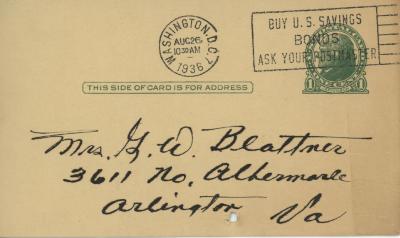 WASHINGTON, D.C. 7
AUG 26
10 30 AM
1936
BUY U.S. SAVINGS
BONDS
ASK YOUR POSTMASTER
1 1
THIS SIDE OF CARD IS FOR ADDRESS
Mrs. G. W. Blattner
3611 No. Albermarle
Arlington Va